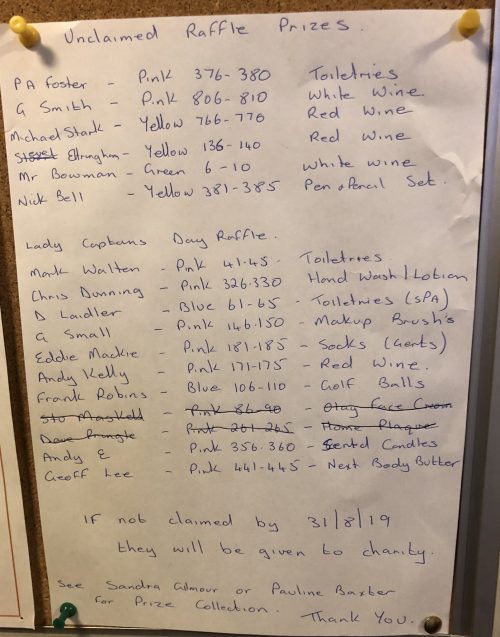 Unclaimed Raffle Prizes.
PA Foster - Pink 376-380 Toiletries
G Smith - Pink 806-810 White Wine
Michael Stark - Yellow 766-770 Red Wine
Eltringham - Yellow 136-140 Red Wine
Mr Bowman - Green 6-10 White Wine
Nick Bell - Yellow 381-385 Pen & Pencil Set.
Lady Captains Day Raffle.
Mark Walten - Pink 41-45 - Toiletries
Chris Dunning - Pink 326-330 Hand Wash/Lotion
D Laidler - Blue 61-65 - Toiletries (SPA)
G Small - Pink 146-150 - Makup Brush's
Eddie Mackie - Pink 181-185 - Socks (Gents)
Andy Kelly - Pink 171-175 - Red Wine.
Frank Robins - Blue 106-110 - Golf Balls
Stu Maskell - Pink 86-90 - Olay Face Cream
Dave Pringle - Pink 261-265 - Home Plaque
Andy E - Pink 356-360 - Scentd Candles
Geoff Lee - Pink 441-445 - Next Body Butter
IF not claimed by 31/8/19
they will be given to charity.
See Sandra Gilmour or Pauline Baxter
For Prize Collection. Thank You.